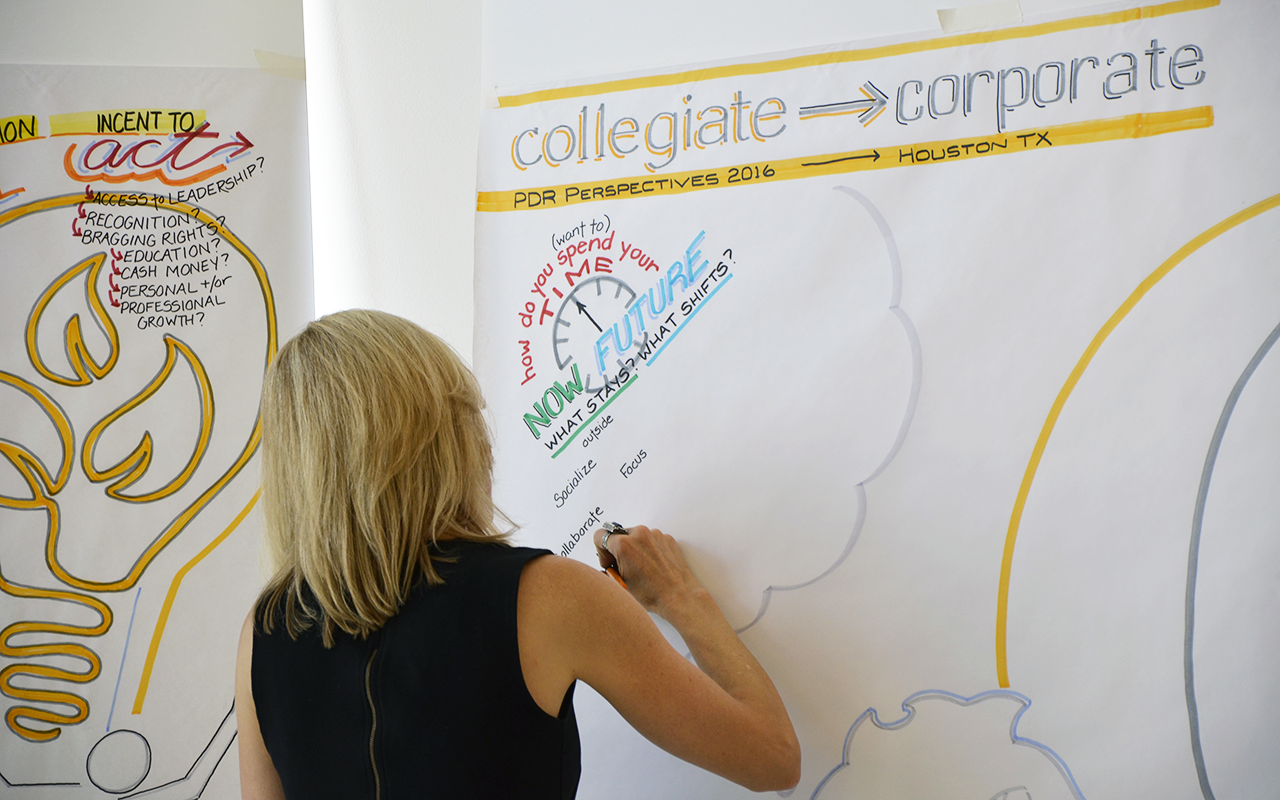 INCENT TO
act
ACCESS to LEADERSHIP?
RECOGNITION?
BRAGGING RIGHTS?
EDUCATION?
CASH MONEY?
PERSONAL +/or
PROFESSIONAL
GROWTH?
collegiate → corporate
PDR PERSPECTIVES 2016 → HOUSTON TX
(want to)
how do you spend your
TIME
NOW FUTURE
WHAT STAYS? WHAT SHIFTS?
outside
Socialize
Focus